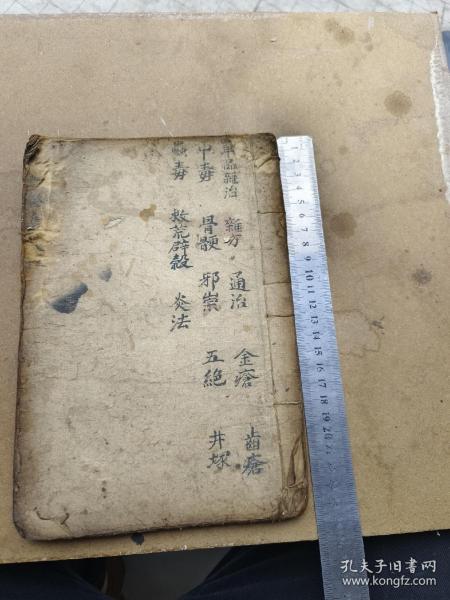 雜治 雜方 通治 金瘡 齒瘡
中毒 骨髓 邪祟 五絕 井塚
蟲毒 救荒辟穀 灸法
1 2 3 4 5 6 7 8 9 10 11 12 13 14 15 16 17 18 19 20
孔夫子旧书网
www.kongfz.com